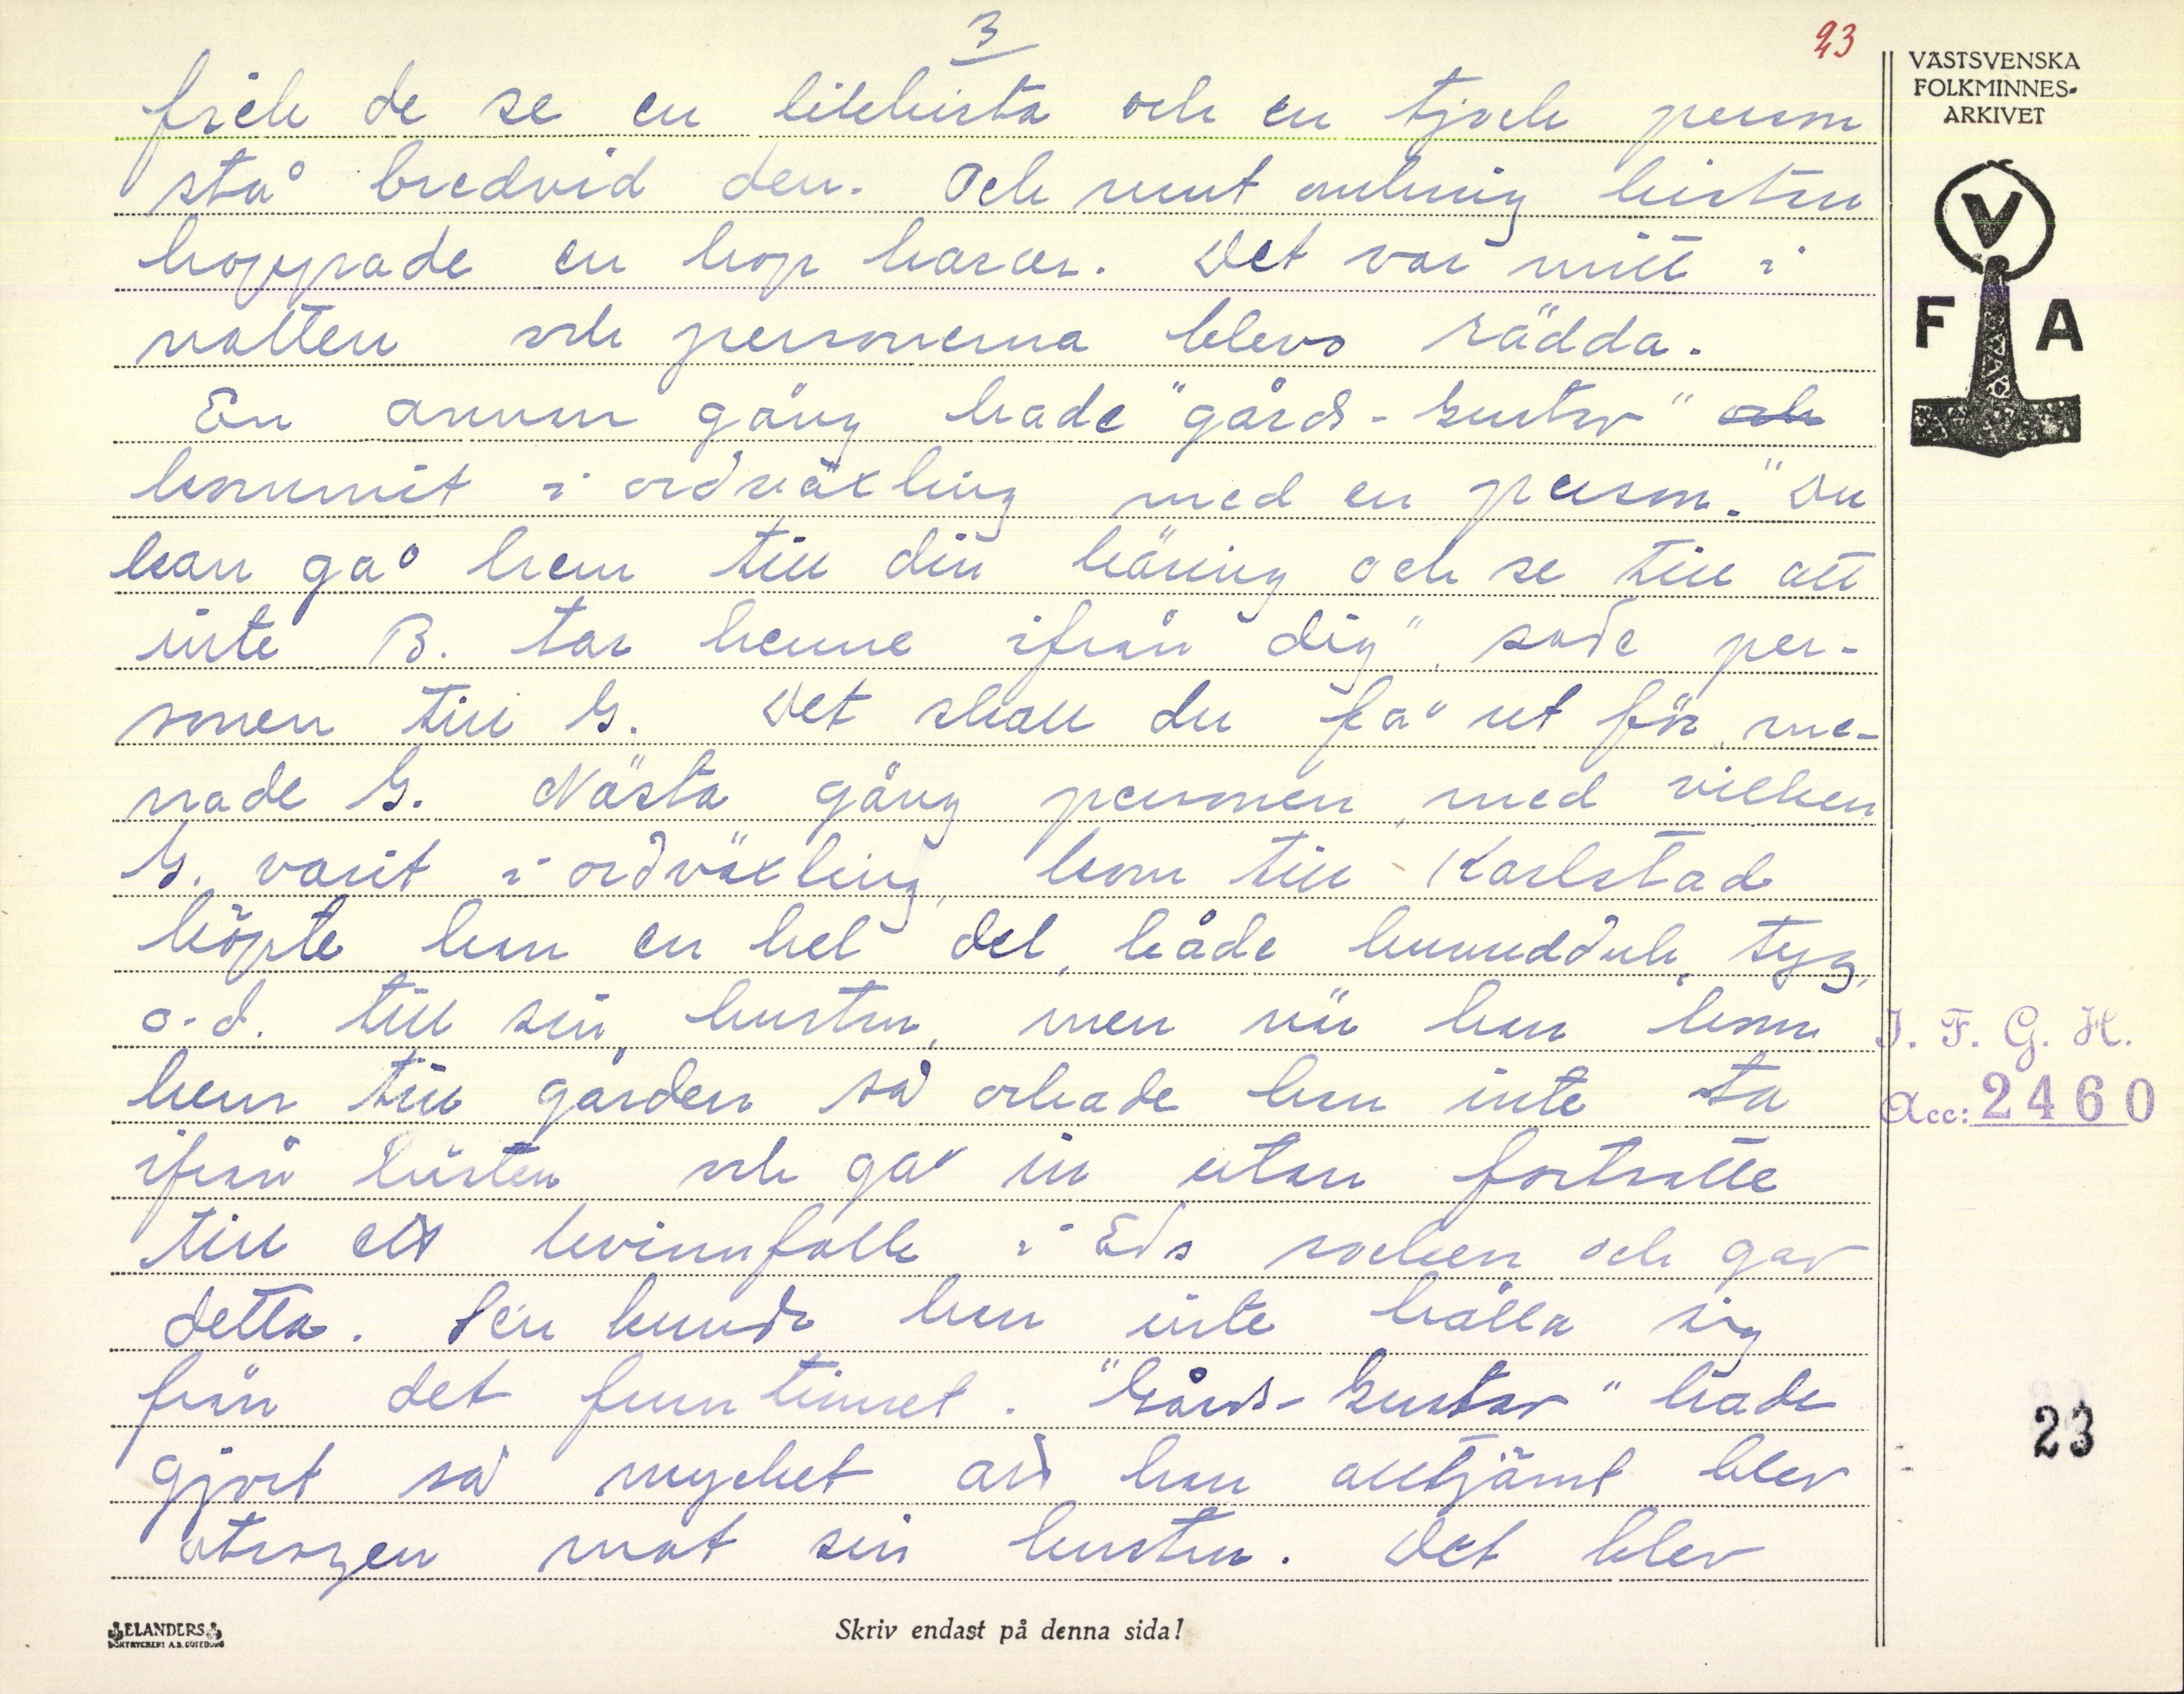 3
23
VÄSTSVENSKA
FOLKMINNES-
ARKIVET
V
F A
fick de se en likkista och en tjock person
stå bredvid den. Och runt omkring kistan
hoppade en hop harar. Det var mitt i
natten och personerna blevo rädda.
En annan gång hade "gårds-Gustav" och
kommit i ordväxling med en person. "Du
kan gå hem till din käring och se till att
inte B. tar henne ifrån dig", sade per-
sonen till G. Det skall du få ut för, me-
nade G. Nästa gång personen, med vilken
G. varit i ordväxling, kom till Karlstad
köpte han en hel del, både huvuddok, tyg,
o.d. till sin hustru, men när han kom
hem till gården så orkade han inte ta
ifrån hästen och gå in utan fortsatte
till ett kvinnfolk i Eds socken och gav
detta. Sen kunde han inte hålla sig
från det fruntimret. "Gårds-Gustav" hade
gjort så mycket att han alltjämt blev
otrogen mot sin hustru. Det blev
I. F. G. H.
Acc: 2460
23
ELANDERS
BOKTRYCKERI A.B. GÖTEBORG
Skriv endast på denna sida!